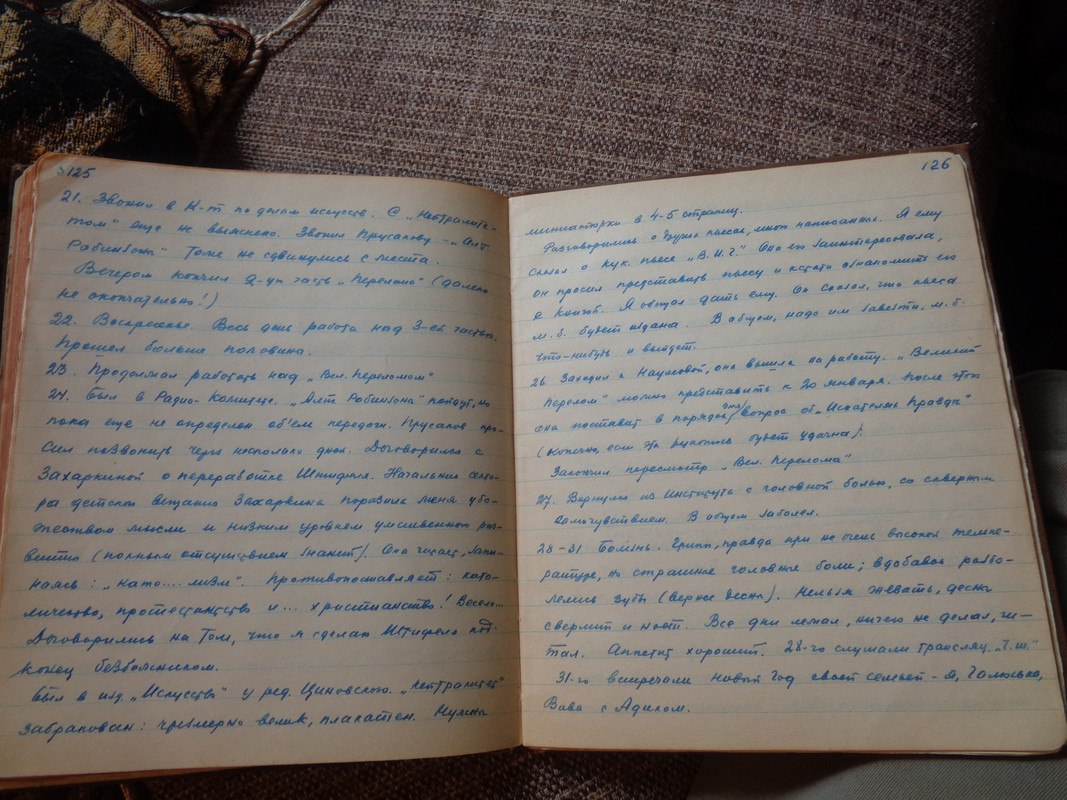 125
21. Звонил в К-т по делам искусств. С „Нейтралите-
том" еще не выяснено. Звонил Прусакову – „Алт.
Робинзоны" тоже не сдвинулись с места.
Вечером кончил 2-ую часть „Перелома" (далеко
не окончательно!)
22. Воскресенье. Весь день работа над 3-ей частью.
Прошел больше половины.
23. Продолжал работать над „Вел. Переломом"
24. Был в Радио-Комитете. „Алт. Робинзоны" пойдут, но
пока еще не определен об'ем передачи. Прусаков про-
сил позвонить через несколько дней. Договорился с
Захаркиной о переработке Штифеля. Начальник секто-
ра детского вещания Захаркина поразила меня убо-
жеством мысли и низким уровнем умственного раз-
вития (полным отсутствием знаний). Она читает, запи-
наясь: „като.... лизм". Противопоставляет: като-
личество, протестантство и ... христианство! Весело...
Договорились на том, что я сделаю Штифеля под
конец безбожником.
Был в изд. „Искусство" у ред. Циновского. „Нейтралитет"
забракован: чрезмерно велик, плакатен. Нужны
126
миниатюрки в 4-5 страниц.
Разговорились о других пьесах, мною написанных. Я ему
сказал о кук. пьесе „В.И.Г." Она его заинтересовала,
он просил представить пьесу и кстати ознакомить его
с книгой. Я обещал дать ему. Он сказал, что пьеса
м.б. будет издана. В общем, надо им завезти, м.б.
что-нибудь и выйдет.
26. Заходил к Наумовой, она вышла на работу. „Великий
Перелом" можно представить к 20 января. После этого
она поставит в порядок дня вопрос об „Искателе Правды"
(конечно, если эта рукопись будет удачна).
Закончил пересмотр „Вел. Перелома"
27. Вернулся из Института с головной болью, со скверным
самочувствием. В общем заболел.
28-31. Болезнь. Грипп, правда при не очень высокой темпе-
ратуре, но страшные головные боли; вдобавок разбо-
лелись зубы (вернее десна). Нельзя жевать, десну
сверлит и ноет. Все дни лежал, ничего не делал, чи-
тал. Аппетит хороший. 28-го слушали трансляц. „Т.ш."
31-го встречали новый год своей семьей – я, Галюська,
Вива с Адиком.